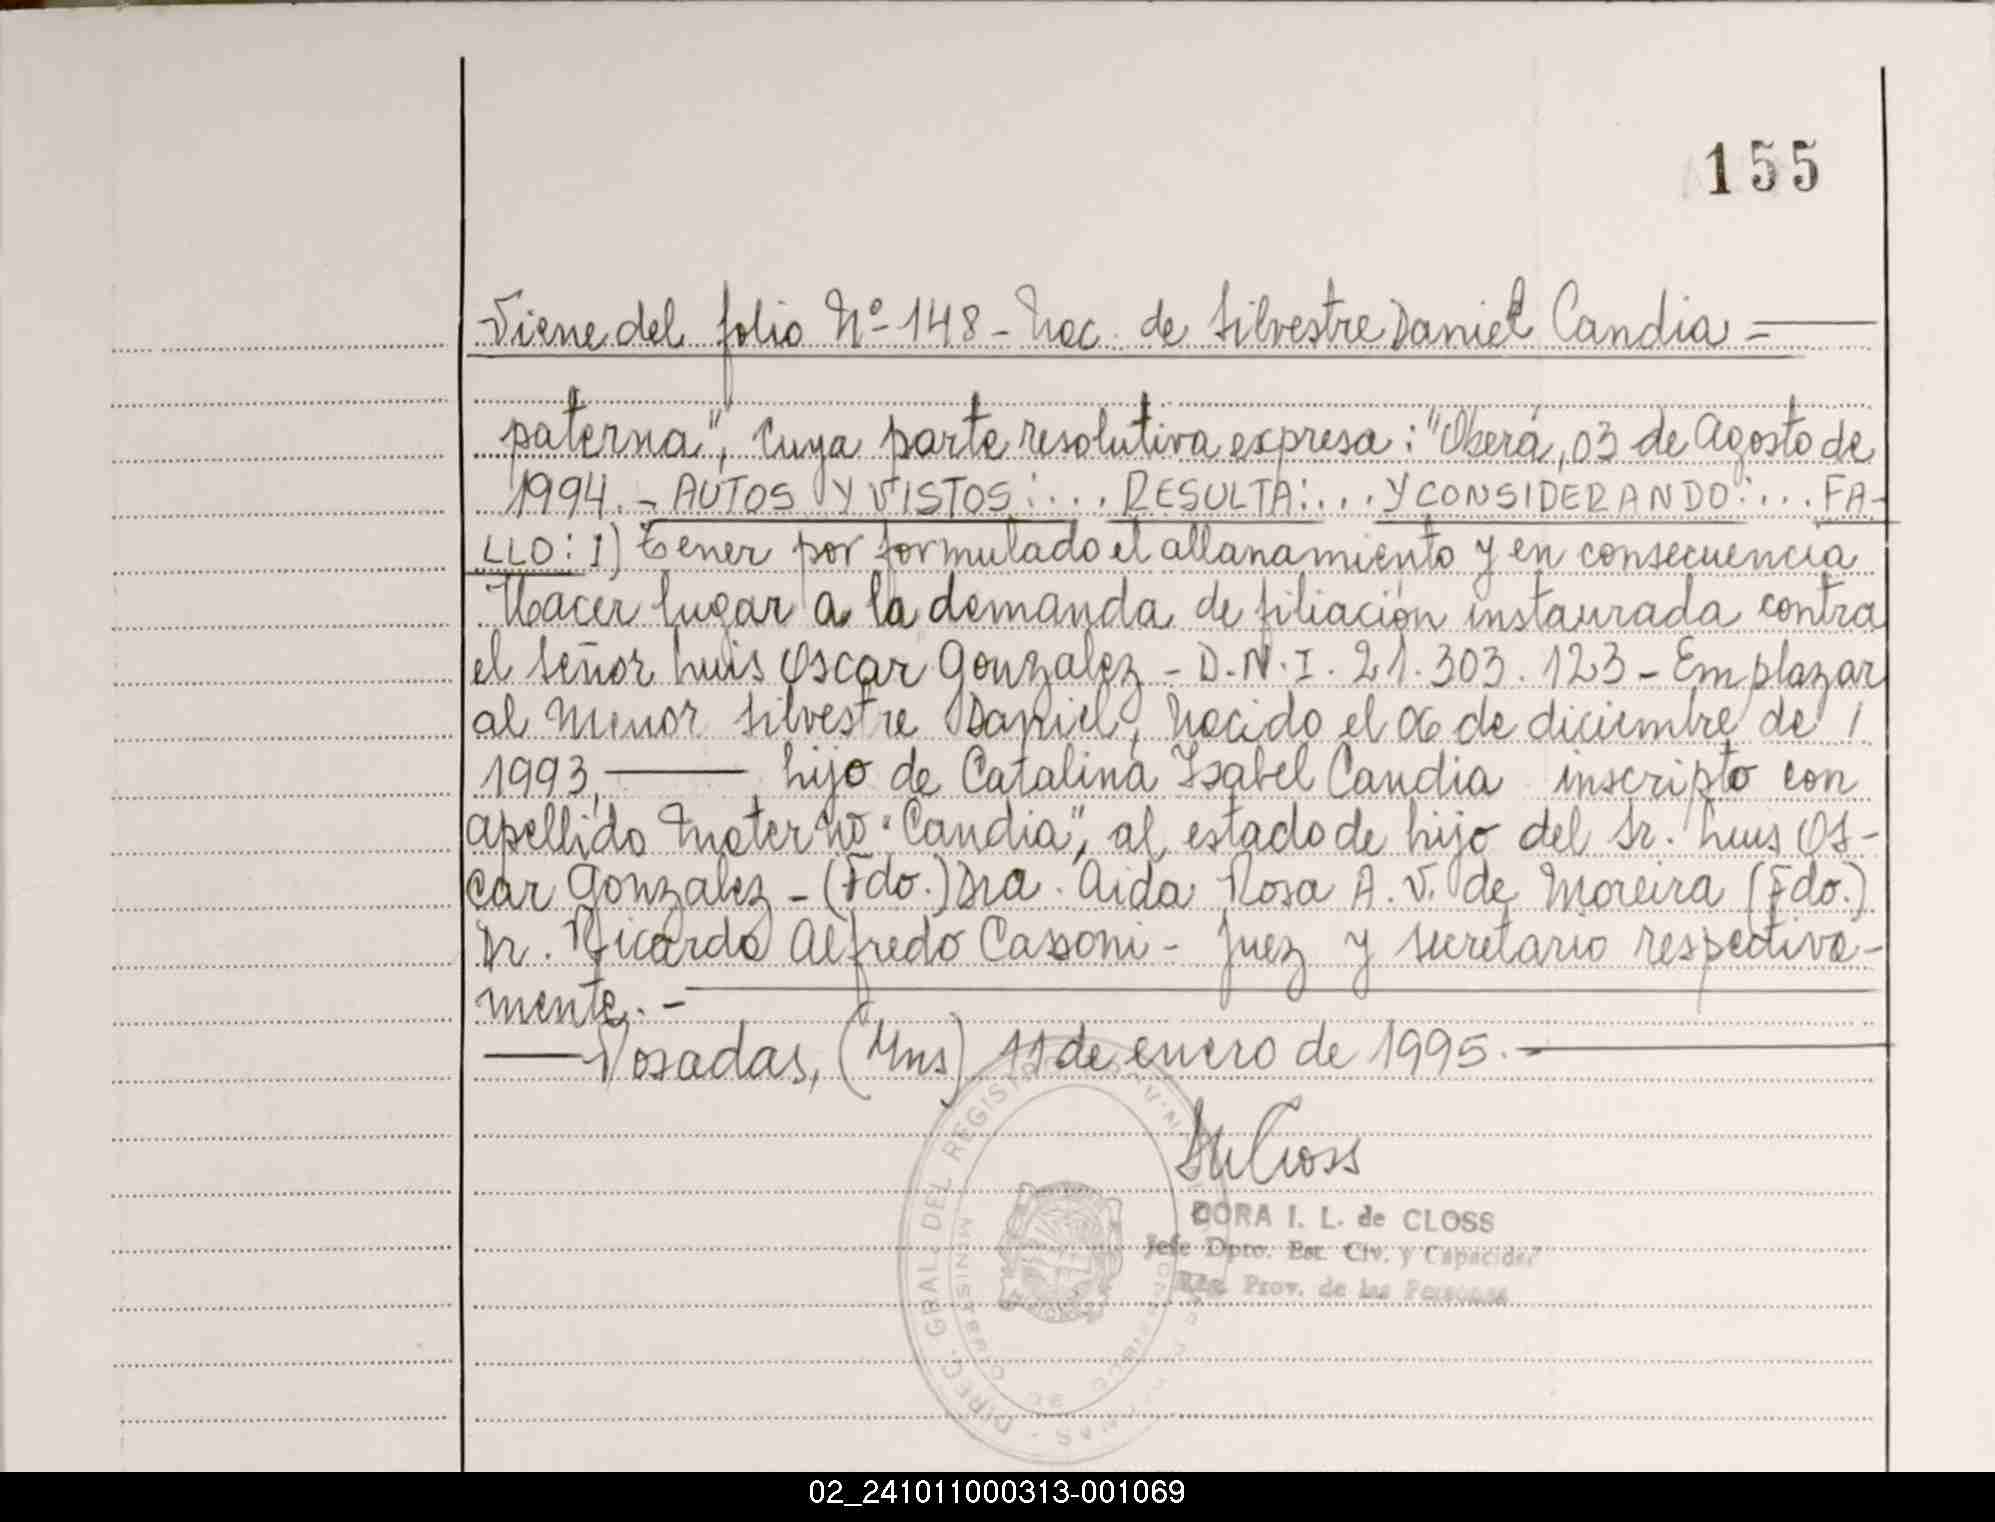 155
Viene del folio Nº 148 - Nac. de Silvestre Daniel Candia =
paterna", cuya parte resolutiva expresa: "Oberá, 03 de Agosto de
1994. - AUTOS Y VISTOS:... RESULTA:... Y CONSIDERANDO:... FA-
LLO: I) Tener por formulado el allanamiento y en consecuencia
Hacer lugar a la demanda de filiación instaurada contra
el señor Luis Oscar Gonzalez - D.N.I. 21.303.123 - Emplazar
al menor Silvestre Daniel, nacido el 06 de diciembre de /
1993, —— hijo de Catalina Isabel Candia inscripto con
apellido materno "Candia", al estado de hijo del Sr. Luis Os-
car Gonzalez - (Fdo.) Dra. Aida Rosa A. V. de Moreira (Fdo.)
Dr. Ricardo Alfredo Cassoni - Juez y secretario respectiva-
mente. -
—— Posadas, (Mns) 11 de enero de 1995. ——
DORA I. L. de CLOSS
Jefe Dpto. Est. Civ. y Capacidad
Reg. Prov. de las Personas
DIREC. GRAL. DEL REGISTRO
02_241011000313-001069